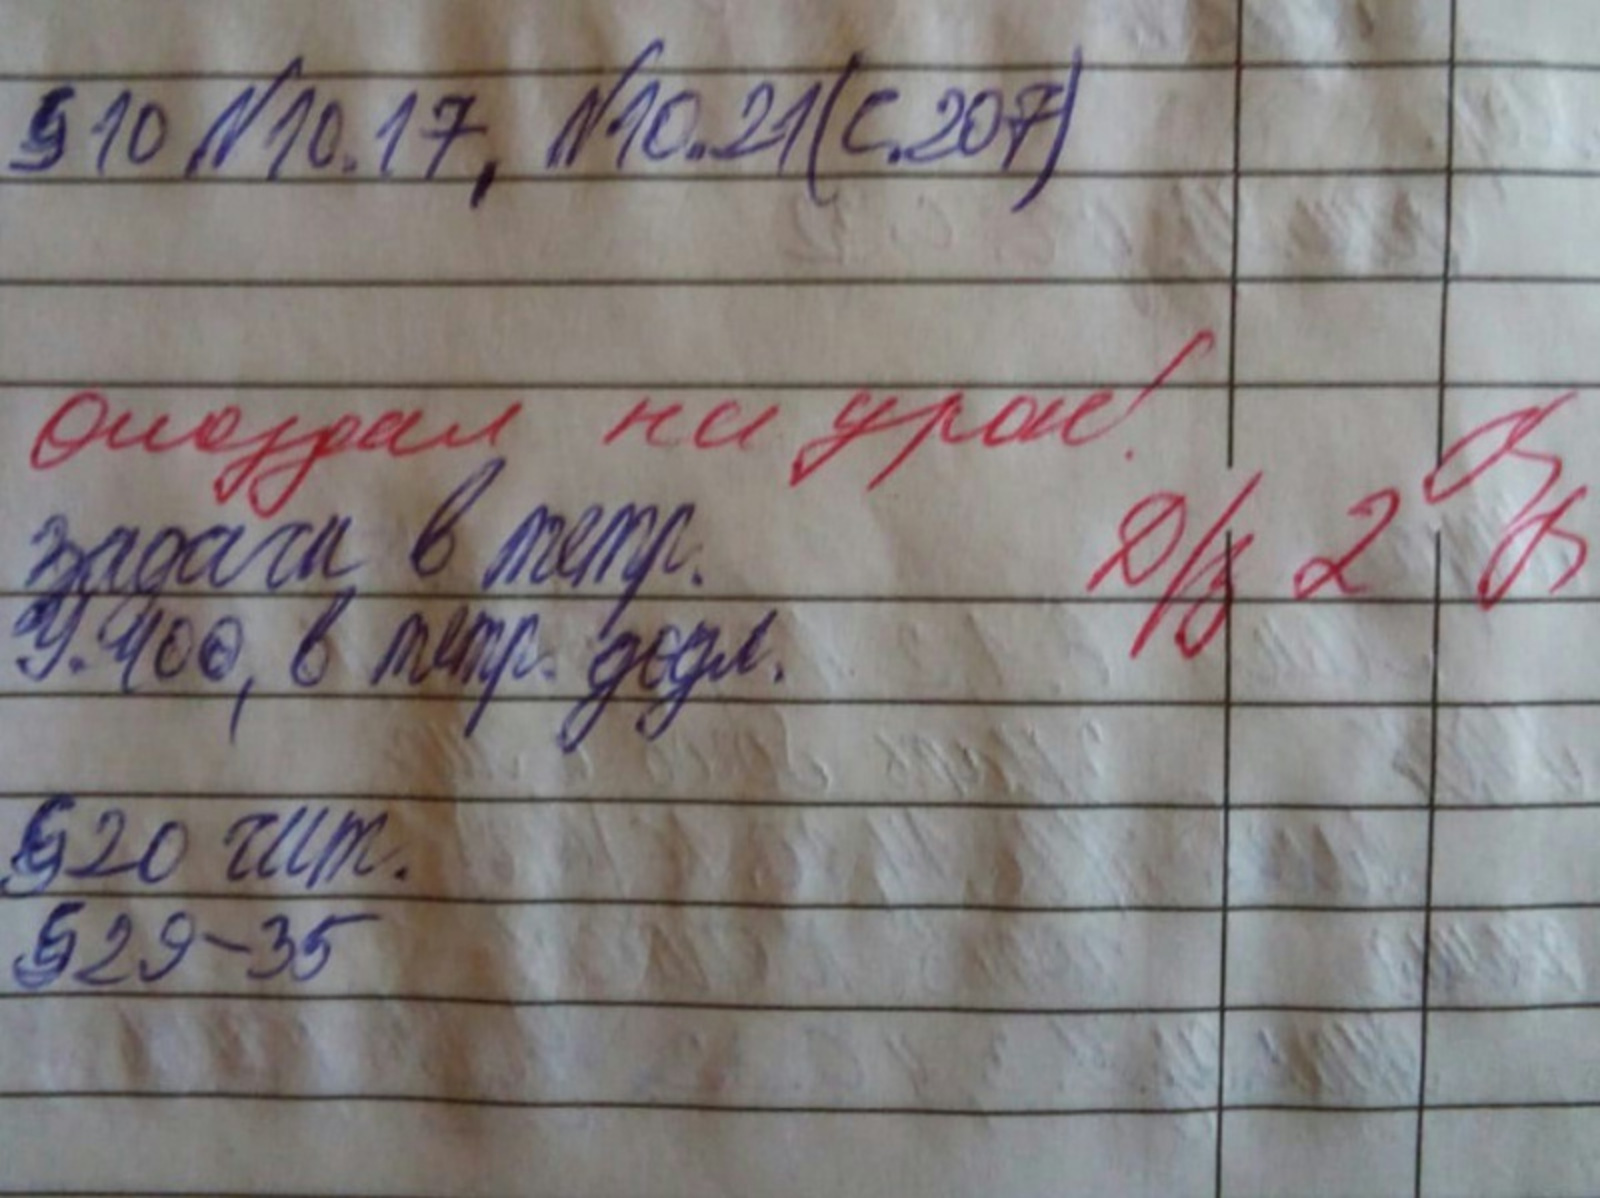 §10 №10.17, №10.21(с.207)
Опоздал на урок!
задачи в тетр.
Д/з 2
У.400, в тетр. додл.
§20 чит.
§29-35